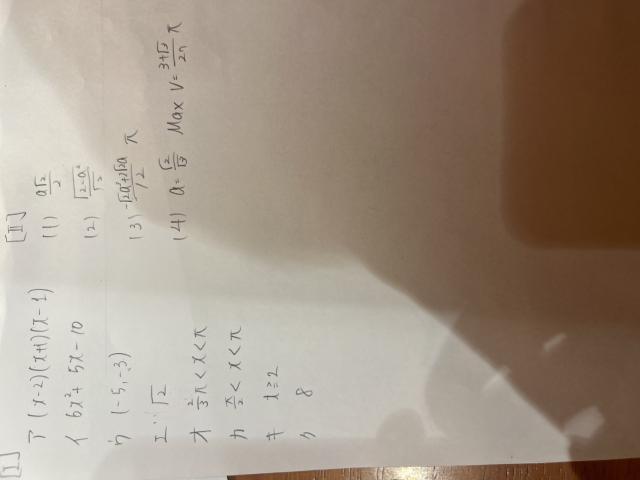 [I]
ア (x-2)(x+1)(x-1)
イ 6x²+5x-10
ウ (-5,-3)
エ √2
オ 2/3π<x<π
カ π/2<x<π
キ t≧2
ク 8
[II]
(1) a√2/2
(2) √(2-a²)/√2
(3) π
(4) a=√2/√3 Max V= π